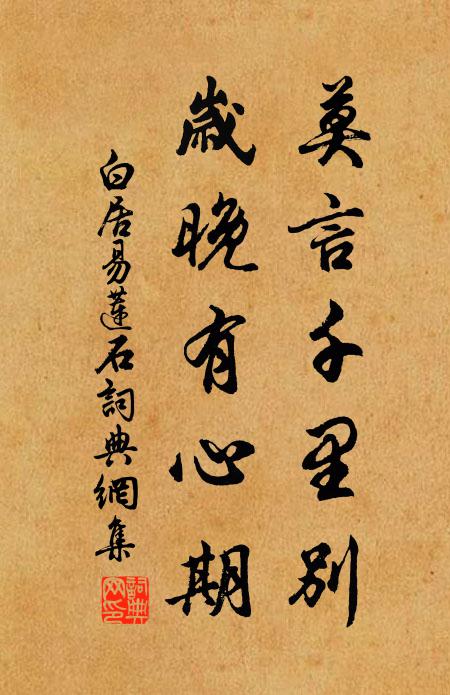 莫言千里别
歲晚有心期
白居易蓮石詞典網集
詞典网印